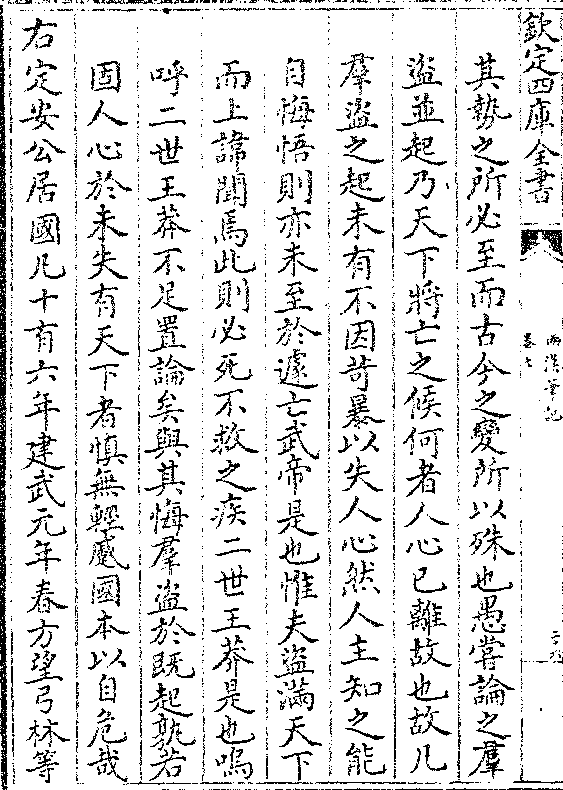 欽定四庫全書
兩漢筆記
卷七
其勢之所必至而古今之變所以殊也愚嘗論之羣
盜並起乃天下將亡之候何者人心已離故也故凡
羣盜之起未有不因苛暴以失人心然人主知之能
自悔悟則亦未至於遽亡武帝是也惟夫盜滿天下
而上諱聞焉此則必死不救之疾二世王莽是也嗚
呼二世王莽不足置論矣與其悔羣盜於既起孰若
固人心於未失有天下者慎無輕蹙國本以自危哉
右定安公居國凡十有六年建武元年春方望弓林等